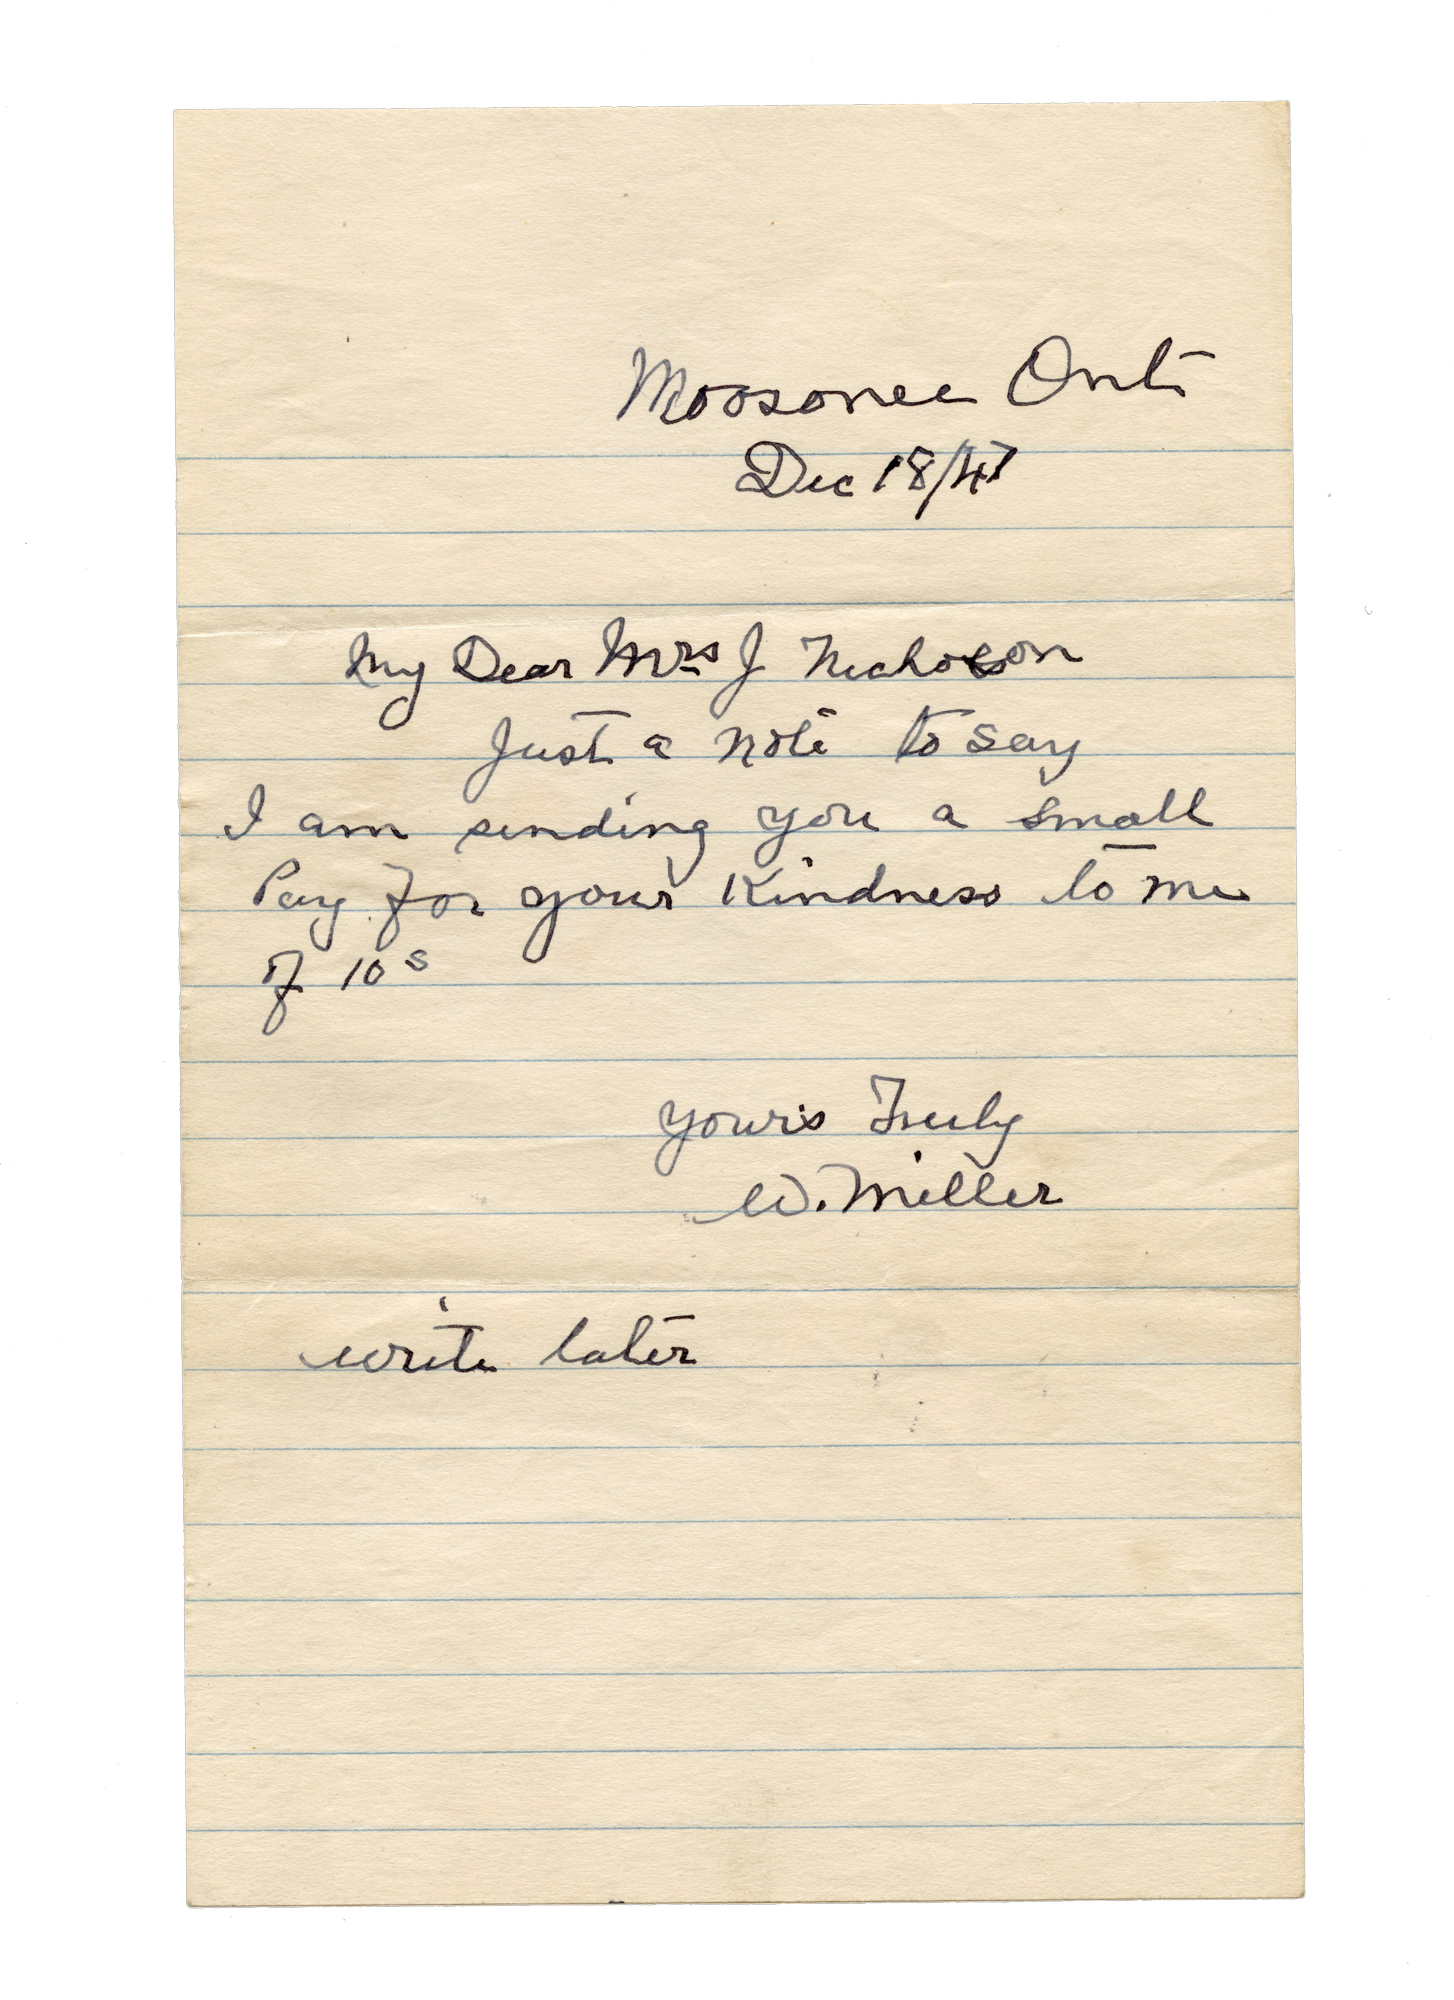 Moosonee Ont.
Dec 18/47
My Dear Mrs J Nicholson
Just a note to say
I am sending you a small
Pay for your Kindness to me
of 10 s
Yours Truly
W. Miller
write later